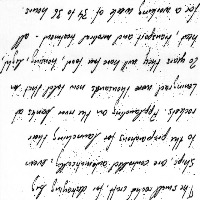 The small rocket craft, for destroying big
ships, are controlled automatically; even
to the preparations for launching their
rockets. on the
were thousands told that in
20 years they will have free housing, light,
heat, transport and medical treatment - all
for a working week of 34 to 36 hours.